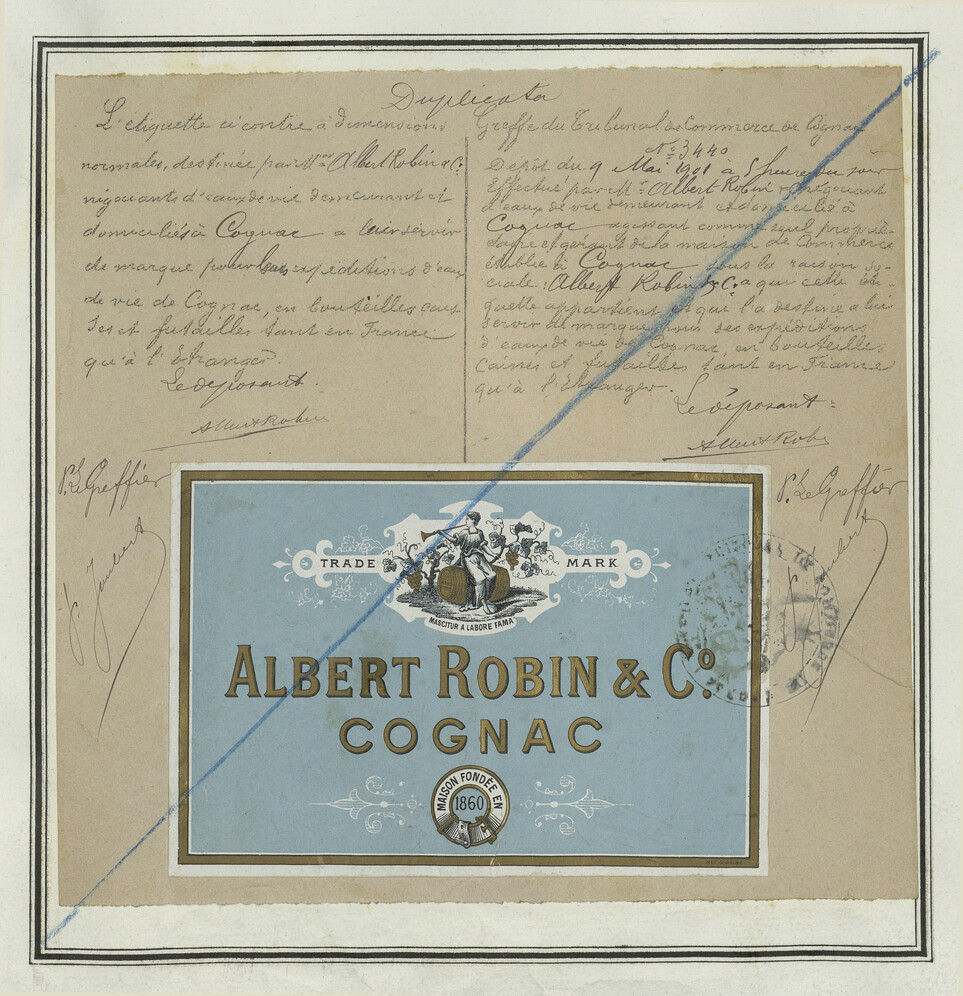 Duplicata
L'etiquette ci contre à dimensions
normales, destinée par Mrs Albert Robin & Co.
négociants d'eaux de vie demeurant et
domiciliés à Cognac a leur servir
de marque pour leurs expéditions d'eau
de vie de Cognac, en bouteilles cais
ses et futailles tant en France
qu'à l'Etranger.
Le déposant.
Albert Robin
Greffe du Tribunal de Commerce de Cognac
No 3440
Depôt du 9 Mai 1901 à 5 heures du soir
Effectué par Mr Albert Robin négociant
d'eaux de vie demeurant et domicilié à
Cognac agissant comme seul proprié-
taire et gérant de la maison de Commerce
établie à Cognac sous la raison so-
ciale: Albert Robin & Co. a qui cette éti-
quette appartient et que l'a destine a lui
servir de marque pour ses expéditions
d'eaux de vie de Cognac, en bouteilles
caisses et futailles tant en France
qu'à l'Etranger.
Le déposant:
Albert Robin
P. Le Greffier
Joubert
P. Le Greffier
Joubert
TRADE MARK
MASCITUR A LABORE FAMA
ALBERT ROBIN & Co.
COGNAC
MAISON FONDÉE EN
1860